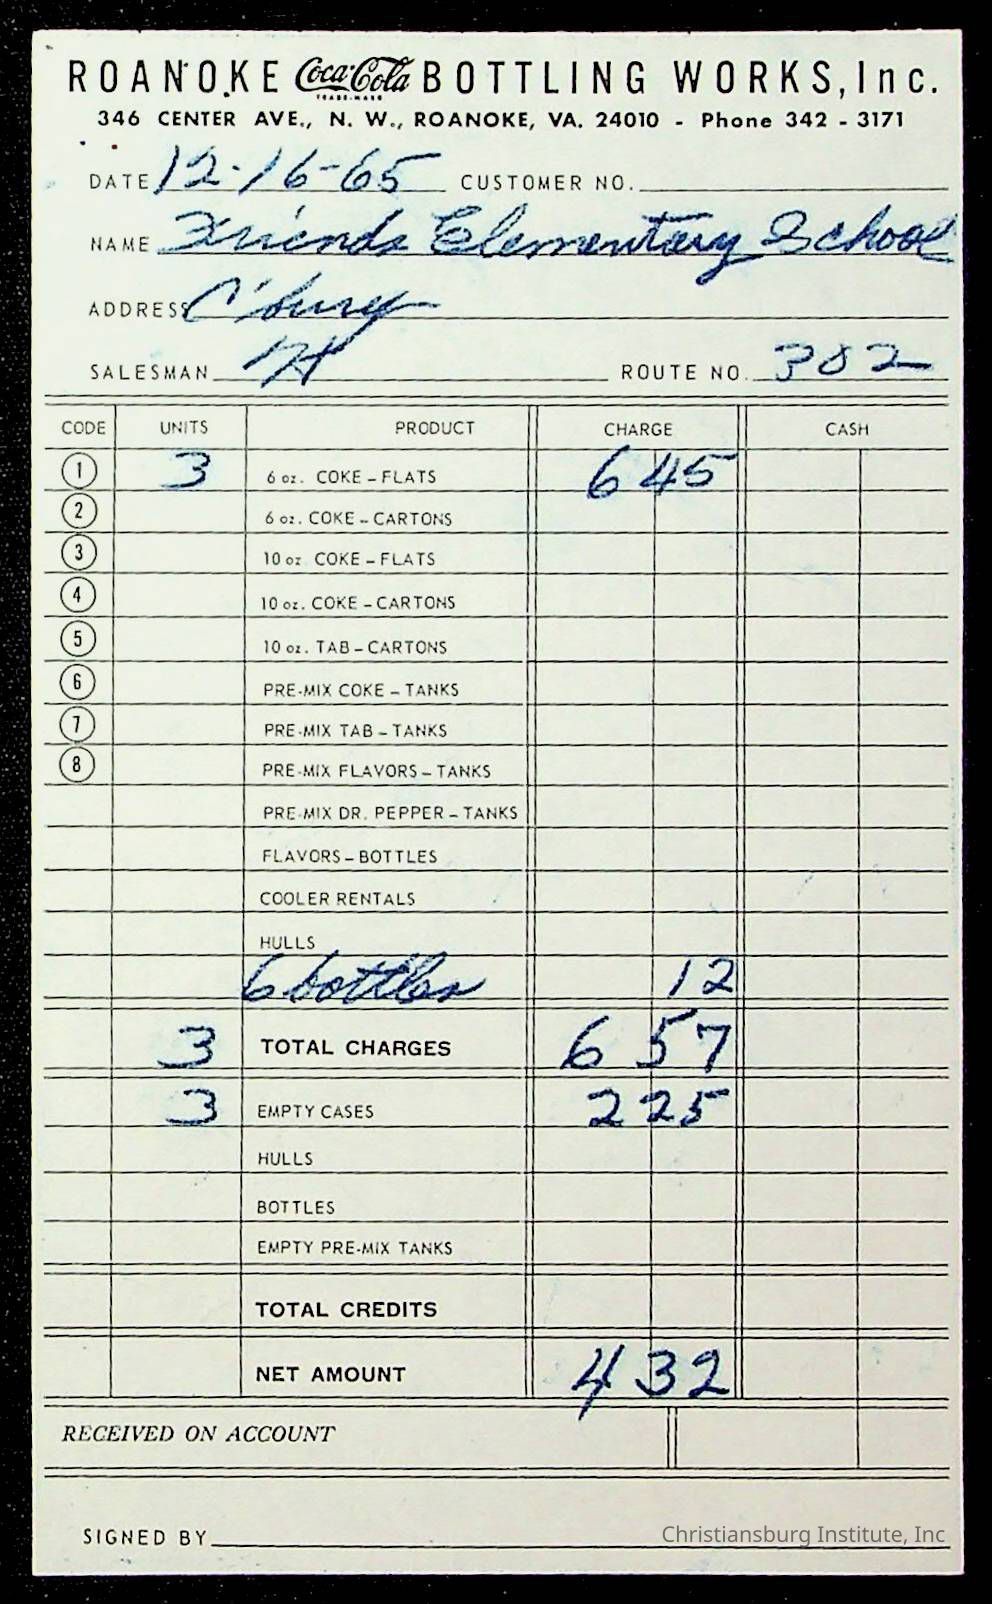 ROANOKE Coca-Cola BOTTLING WORKS, Inc.
TRADE-MARK
346 CENTER AVE., N. W., ROANOKE, VA. 24010 - Phone 342 - 3171
DATE 12-16-65 CUSTOMER NO.
NAME Friends Elementary School
ADDRESS C'burg
SALESMAN H ROUTE NO. 302
CODE UNITS PRODUCT CHARGE CASH
1 3 6 oz. COKE - FLATS 6 45
2 6 oz. COKE - CARTONS
3 10 oz. COKE - FLATS
4 10 oz. COKE - CARTONS
5 10 oz. TAB - CARTONS
6 PRE-MIX COKE - TANKS
7 PRE-MIX TAB - TANKS
8 PRE-MIX FLAVORS - TANKS
PRE-MIX DR. PEPPER - TANKS
FLAVORS - BOTTLES
COOLER RENTALS
HULLS
6 bottles 12
3 TOTAL CHARGES 6 57
3 EMPTY CASES 2 25
HULLS
BOTTLES
EMPTY PRE-MIX TANKS
TOTAL CREDITS
NET AMOUNT 4 32
RECEIVED ON ACCOUNT
SIGNED BY
Christiansburg Institute, Inc